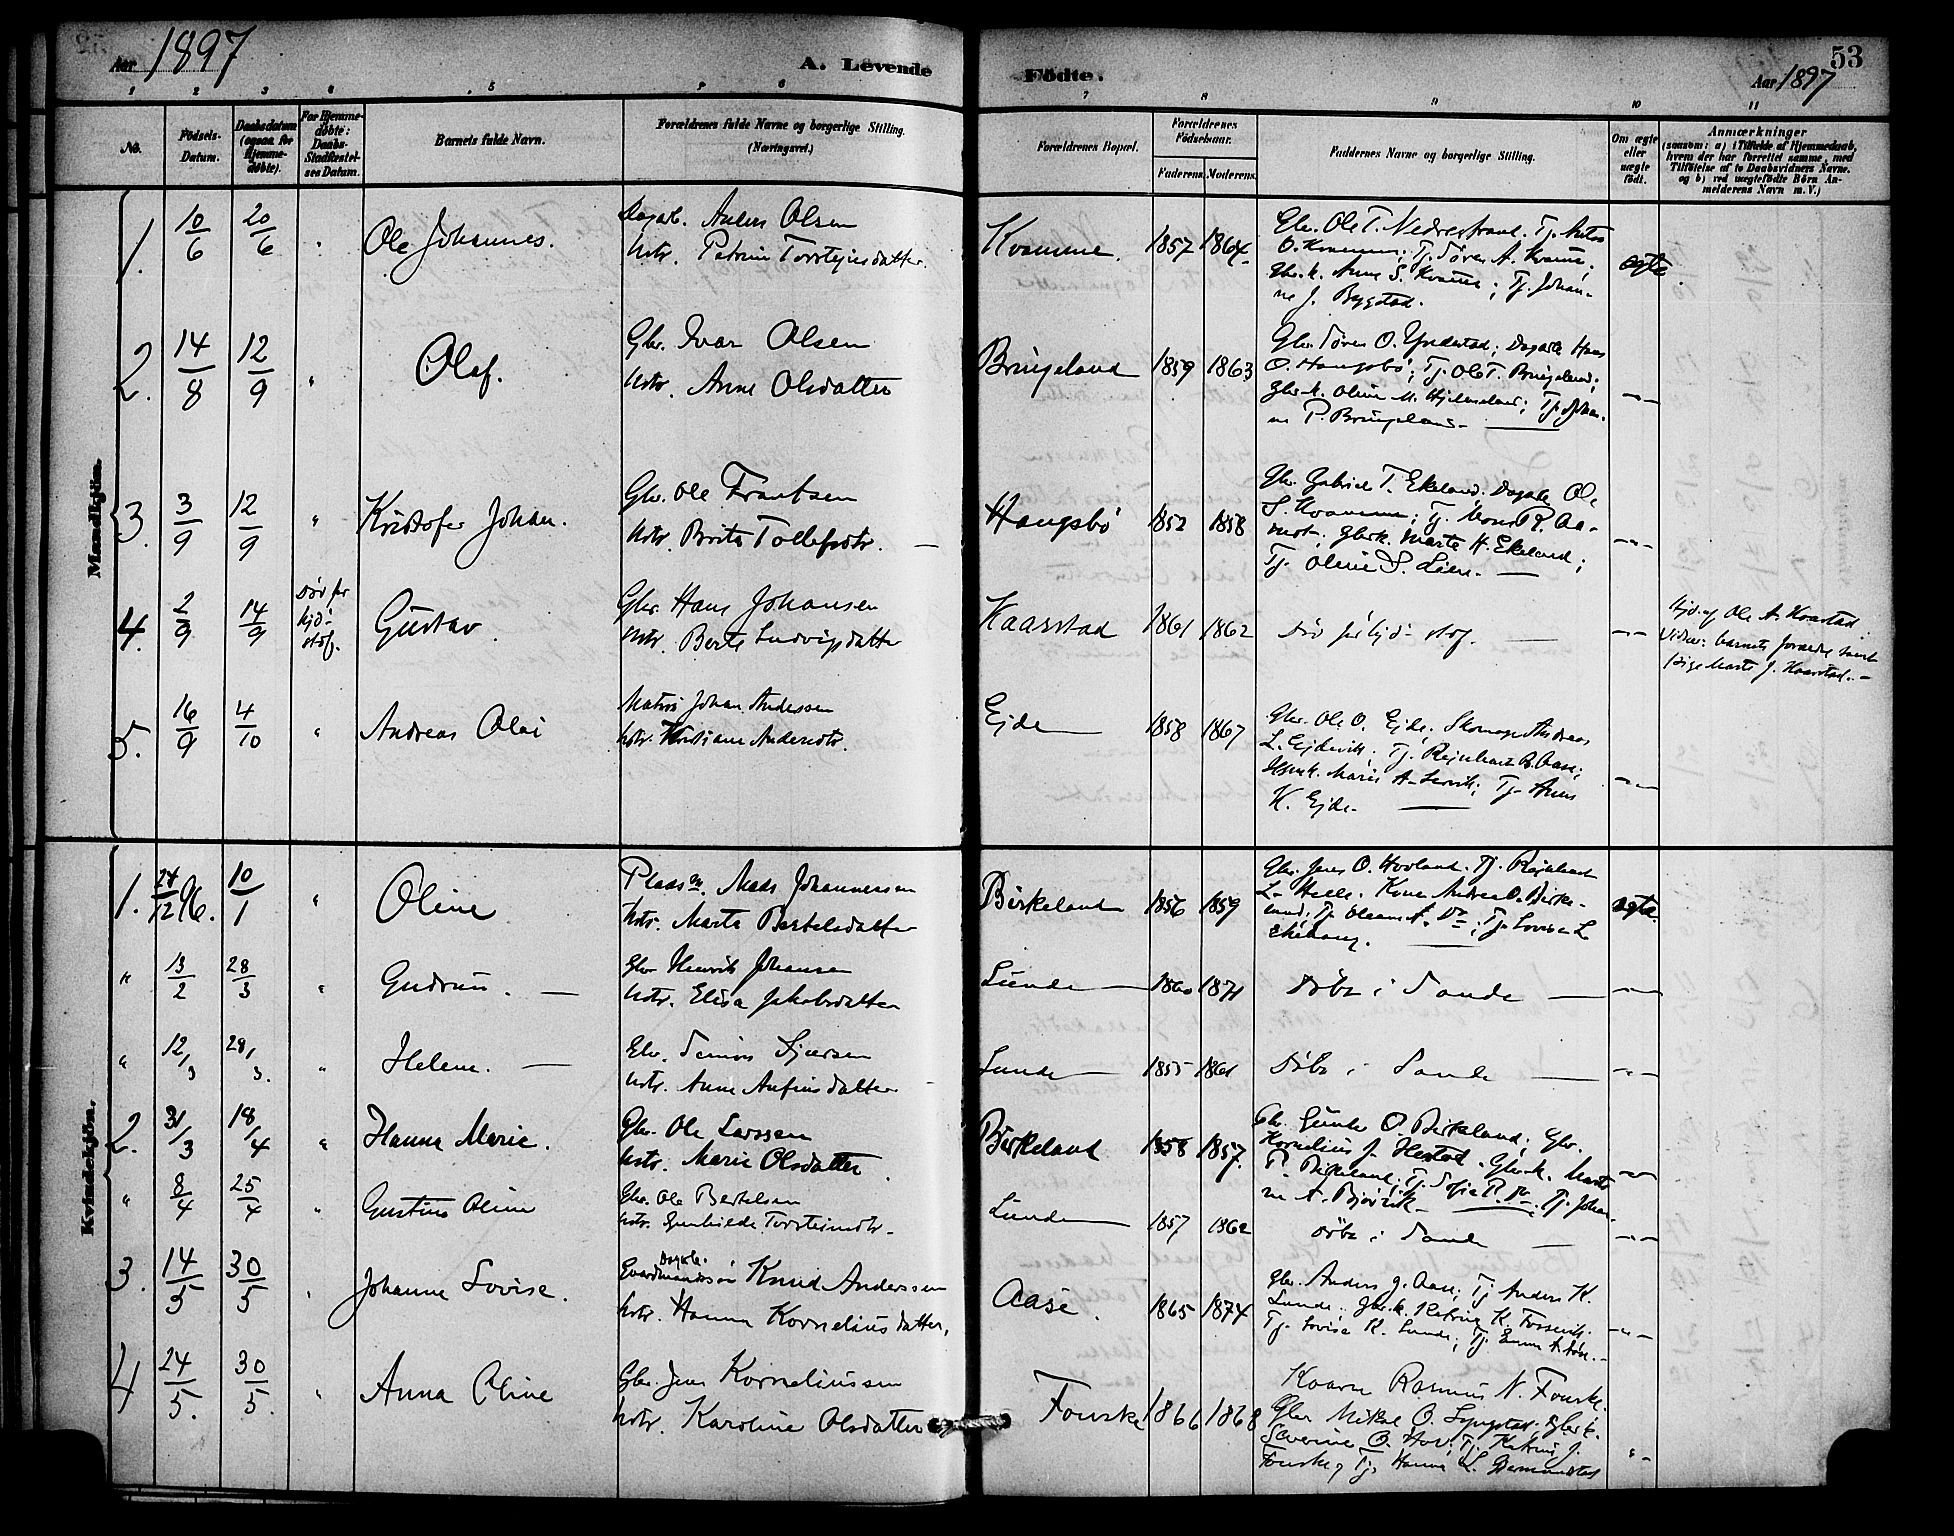 Aar 1897
A. Levende
Födte.
53
Aar 1897
1 2 3 4 5 6
7 8 9 10 11
No.
Födsels-
Datum.
Daabsdatum
(ogsaa for
Hjemme-
döbte).
For Hjemme-
döbte:
Daabs-
Stadfæstel-
ses Datum.
Barnets fulde Navn.
Forældrenes fulde Navne og borgerlige Stilling.
(Næringsvei.)
Forældrenes Bopæl.
Forældrenes
Födselsaar.
Faderens. Moderens.
Faddernes Navne og borgerlige Stilling.
Om ægte
eller
uægte
födt.
Anmærkninger
(saasom: a) i Tilfælde af Hjemmedaab,
hvem der har forrettet samme, med
Tilföielse af to Daabsvidners Navne.
og b) ved uægtefödte Börn An-
melderens Navn m. V.)
Mandkjön.
1. 10/6 20/6 " Ole Johannes.
Dagarb. Anders Olsen
Hstr. Petrine Torsteinsdatter.
Kvamme. 1857 1864
Gbr. Ole T. Nedrestrand. Tj. Anton
O. Kvamme; Tj. Søren A. Kvamme;
Gbr.k. Anne S. Kvamme; Tj. Johan-
ne J. Bygstad.
ægte
2. 14/8 12/9 " Olaf.
Gbr. Ivar Olsen
Hstr. Anne Olsdatter
Bringeland 1859 1863
Gbr. Søren O. Yndestad; Dagarb. Hans
O. Haugsbø; Tj. Ole T. Bringeland;
Gbr.k. Oline M. Hjelmeland; Tj. Johan-
ne P. Bringeland.
-"-
3. 3/9 12/9 " Kristofer Johan.
Gbr. Ole Frantsen
Hstr. Brite Tollefsdtr.
Haugsbø 1852 1858
Gbr. Gabriel T. Ekeland; Dagarb. Ole
S. Kvamme; Tj. Mons R. Aa-
mot; Gbr.k. Marte H. Ekeland;
Tj. Oline S. Lien.
-"-
4. 2/9 14/9 Død før
stadf. Gustav.
Gbr. Hans Johansen
Hstr. Berte Ludvigsdatter
Kaarstad 1861 1862
Død før stadf.
-"-
Hjd. af Ole A. Kaarstad.
Vidner: barnets forældre samt
pige Marte J. Kaarstad.
5. 16/9 4/10 " Andreas Olai
Matros Johan Anderssen
Hstr. Kristiane Andersdtr.
Ejde 1858 1867
Gbr. Ole O. Ejde; Skomager Andreas
L. Ejdevik; Tj. Reinhart B. Aase;
Marie A. Tj. Anne
K. Ejde.
-"-
Kvindekjön.
1. 24/12 96. 10/1 " Oline
Pladsm. Mads Johannessen
Hstr. Marte Bertelsdatter
Birkeland 1856 1859
Gbr. Jens O. Hovland. Tj. Reinhart
L. Helle. Kone Andrea O. Birke-
land; Tj. A. Do; Tj. Lovise L.
ægte.
" 13/2 28/3 " Gudrun.
Gbr. Henrik Johansen
Hstr. Elisa Jakobsdatter
Lunde 1860 1871
Døbt i Sande
-"-
" 12/3 28/3. " Helene.
Gbr. Simon Sjursen
Hstr. Anne Anfinsdatter
Lunde 1855 1861
Døbt i Sande
-"-
2. 31/3 18/4 " Hanna Marie.
Gbr. Ole Larssen
Hstr. Marie Olsdatter
Birkeland 1858 1857.
Gbr. Gunder O. Birkeland; Gbr.
Kornelius J. Hestad. Gbr.k. Marte
P. Birkeland; Tj. Sofie R. Do. Tj. Johan-
ne A. Bjørvik
-"-
" 8/4 25/4 " Gustine Oline
Gbr. Ole Bertelsen
Hstr. Gunhilde Torsteinsdtr.
Lunde 1857 1862
døbt i Sande
-"-
3. 14/5 30/5 " Johanne Lovise.
Dagarb.
Gaardmandssøn Knud Anderssen
Hstr. Hanna Korneliusdatter.
Aase. 1865 1874
Gbr. Anders J. Aase; Tj. Anders K.
Lunde; Gbr.k. Katrine K. Fossevik.
Tj. Lovise K. Lunde; Tj. Emma
-"-
4 24/5. 30/5. " Anna Oline
Gbr. Jens Korneliussen
Hstr. Karoline Olsdatter
Fouske 1866 1868
Kaarm. Rasmus N. Fouske.
Gbr. Mikal O. Gbr.k.
Severine O. Hov. Tj. Katrine J.
Fouske, Tj. Hanna L. Germundstad
"-